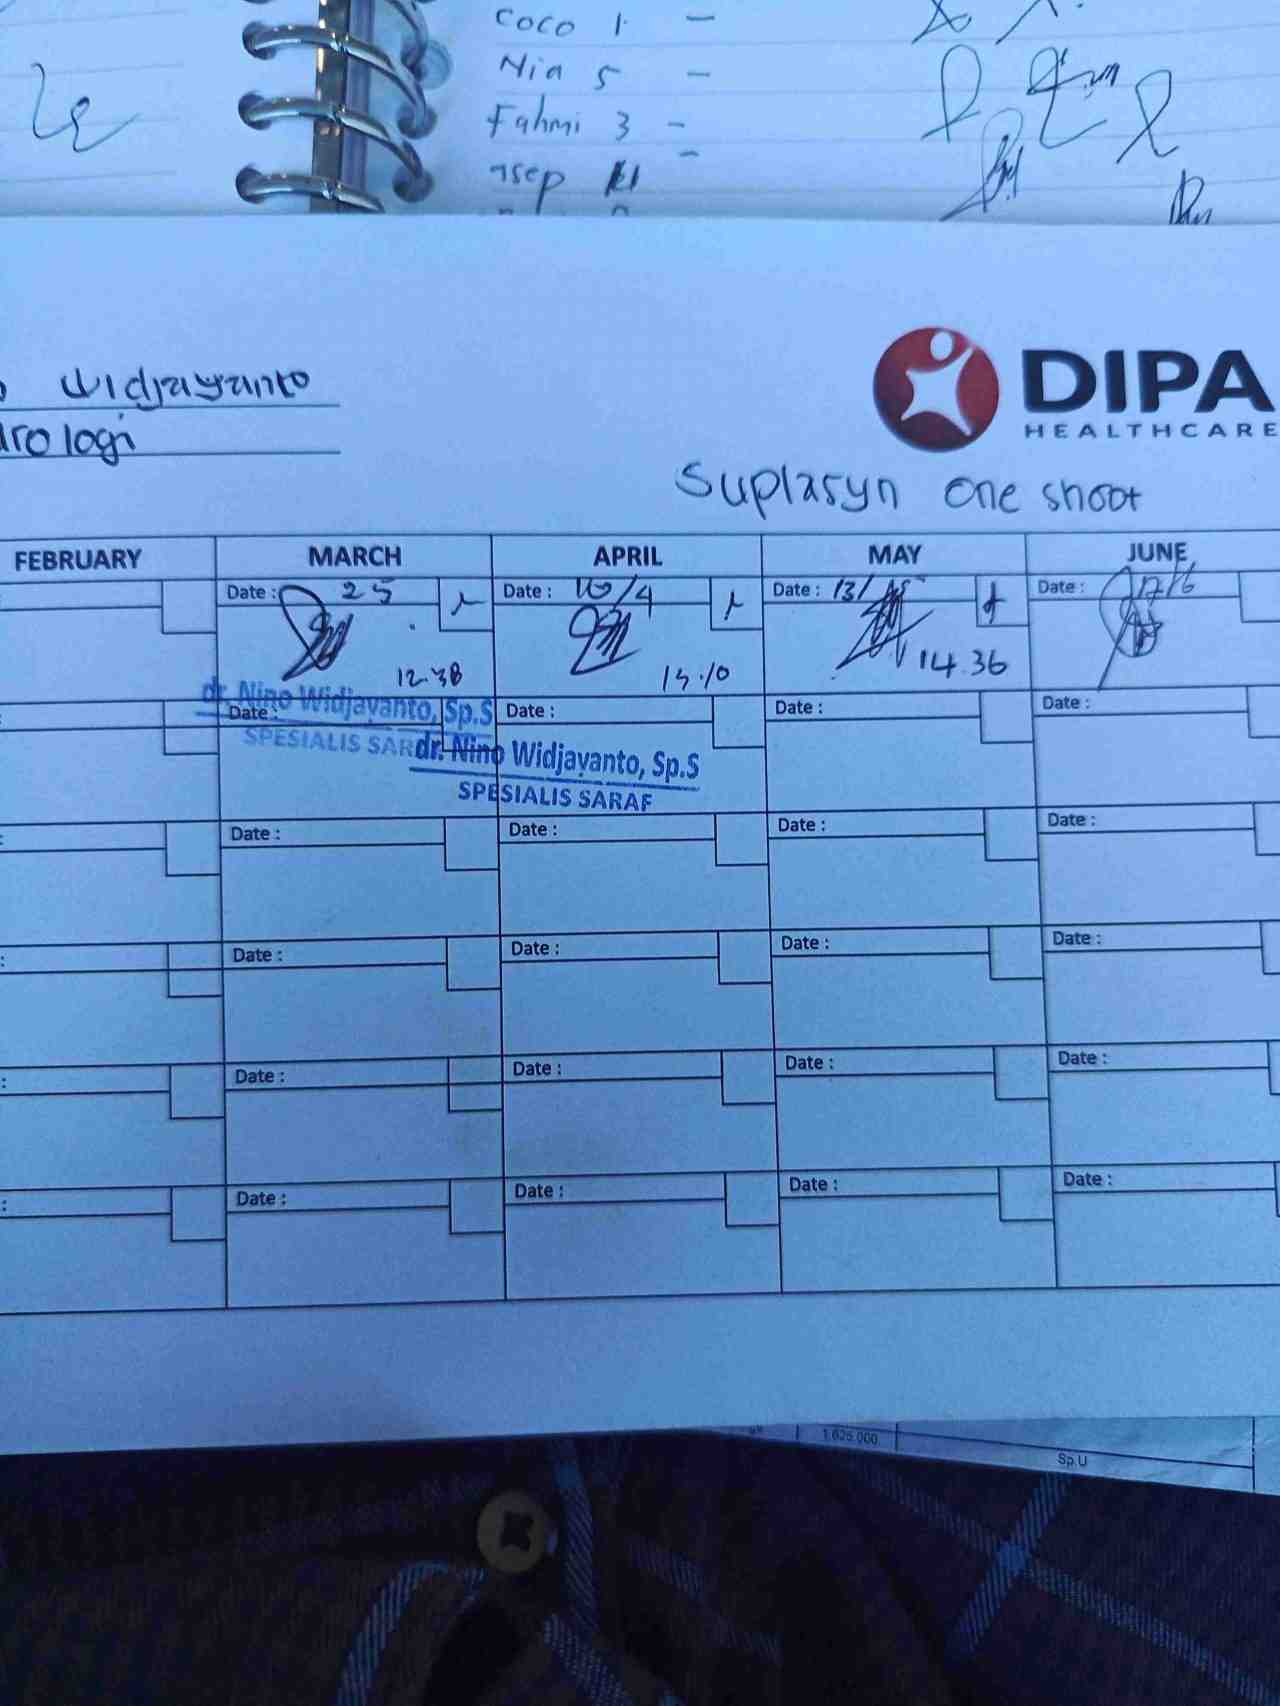 coco 1 -
Nia 5 -
Fahmi 3 -
Asep
Widjayanto
DIPA
HEALTHCARE
Suplasyn one shoot
FEBRUARY MARCH APRIL MAY JUNE
Date : 25 Date : 10/4 Date : 13/ Date : 17/6
12.38 14.36
dr. Nino Widjayanto, Sp.S
Date : Date : Date : Date :
SPESIALIS SAR
dr. Nino Widjayanto, Sp.S
SPESIALIS SARAF
Date : Date : Date : Date :
Date : Date : Date : Date :
Date : Date : Date : Date :
Date : Date : Date : Date :
1.625.000
Sp.U